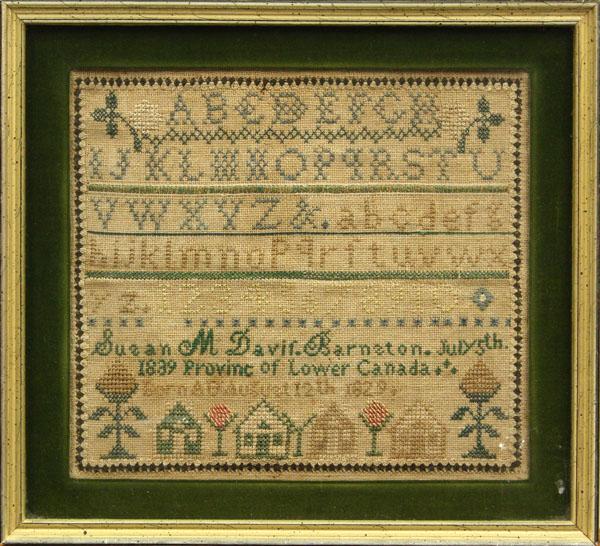 ABCDEFGH
IJKLMNOPQRSTU
VWXYZ&.abcdefg
hijklmnopqrstuvwx
yz. 12345678910
Susan M Davis. Barnston. July 5th.
1839 Provinc of Lower Canada.
Born August 12th 1829.